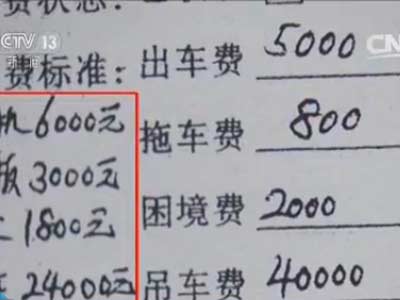 CCTV 13
新闻
CN
费状态:
费标准: 出车费 5000
机 6000元 拖车费 800
板 3000元
1800元 困境费 2000
24000元 吊车费 40000